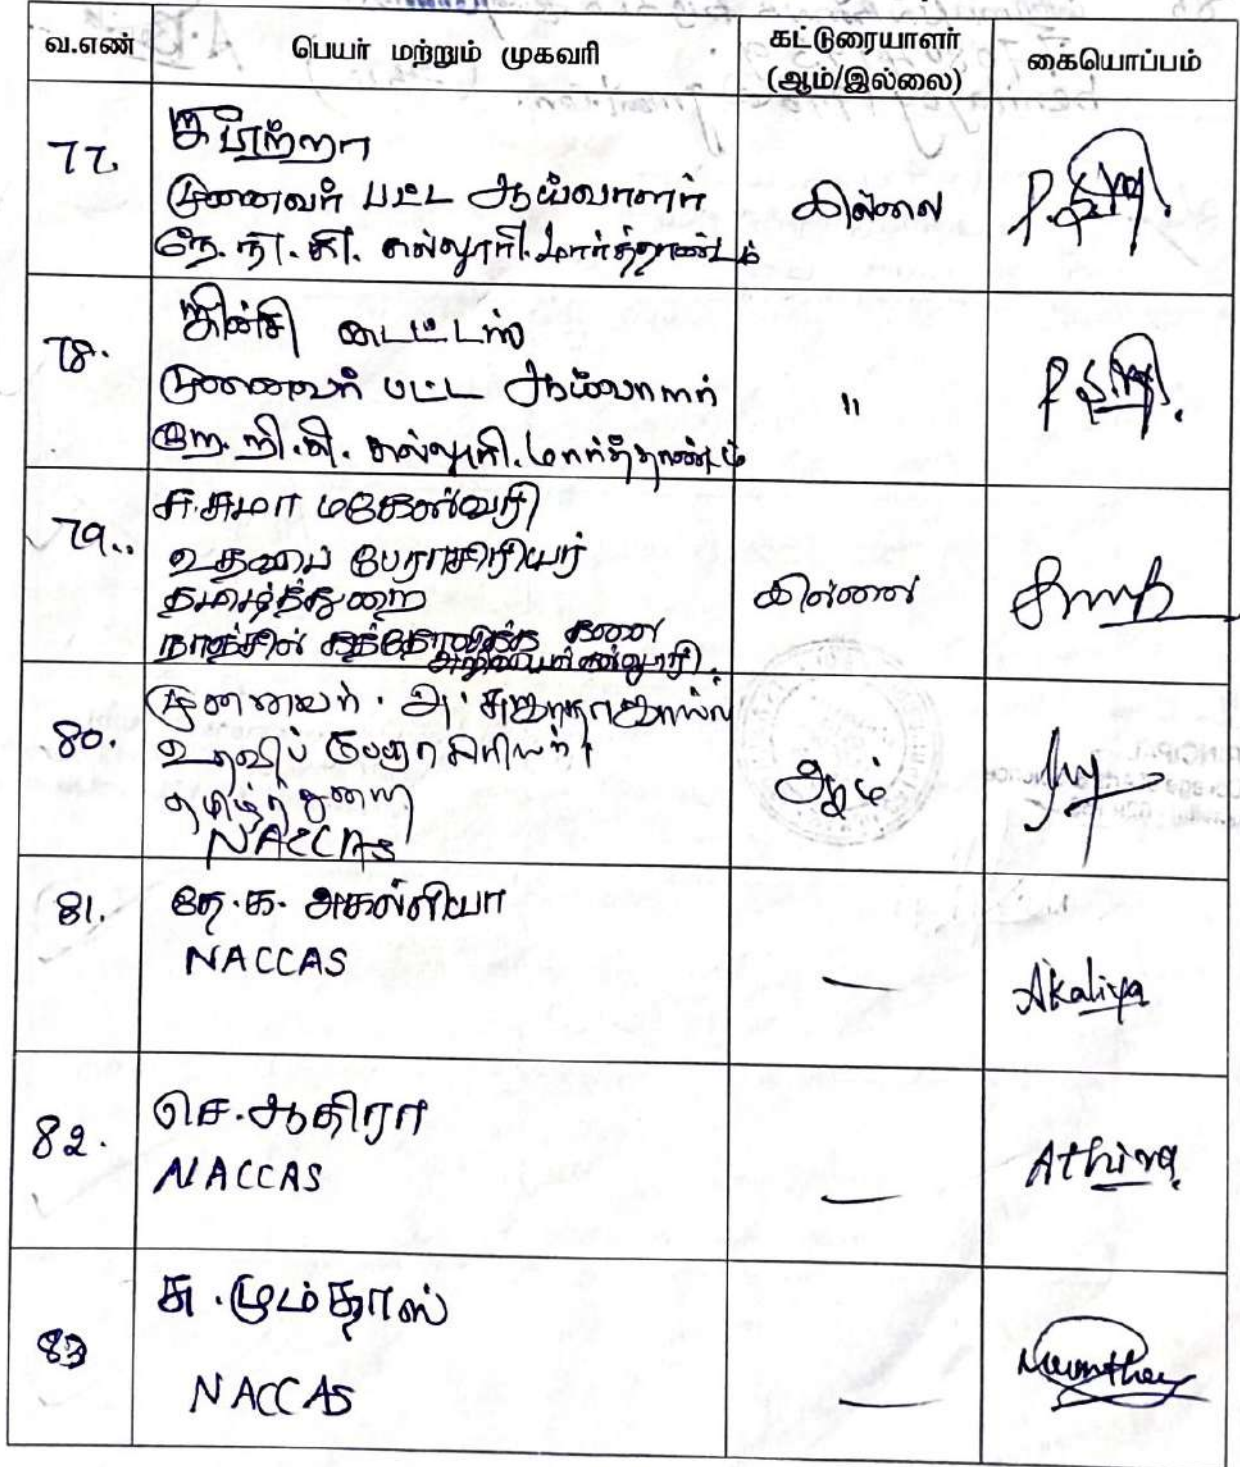 வ.எண் பெயர் மற்றும் முகவரி கட்டுரையாளர் (ஆம்/இல்லை) கையொப்பம்
77.
முனைவர் பட்ட ஆய்வாளர் இல்லை
கல்லூரி. மார்த்தாண்டம்
78. டைட்டஸ்
முனைவர் பட்ட ஆய்வாளர் "
கல்லூரி. மார்த்தாண்டம்
79. ச.சுமா மகேஸ்வரி
உதவிப் பேராசிரியர்
தமிழ்த்துறை இல்லை
நாஞ்சில் கத்தோலிக்க கலை
அறிவியல் கல்லூரி.
80. முனைவர். அ.
உதவிப் பேராசிரியர்
தமிழ்த்துறை ஆம்
NACCAS
81. தே.க. அகல்லியா
NACCAS — Akaliya
82. செ.ஆதிரா
NACCAS — Athira
83 சு.மும்தாஸ்
NACCAS — Mumthas